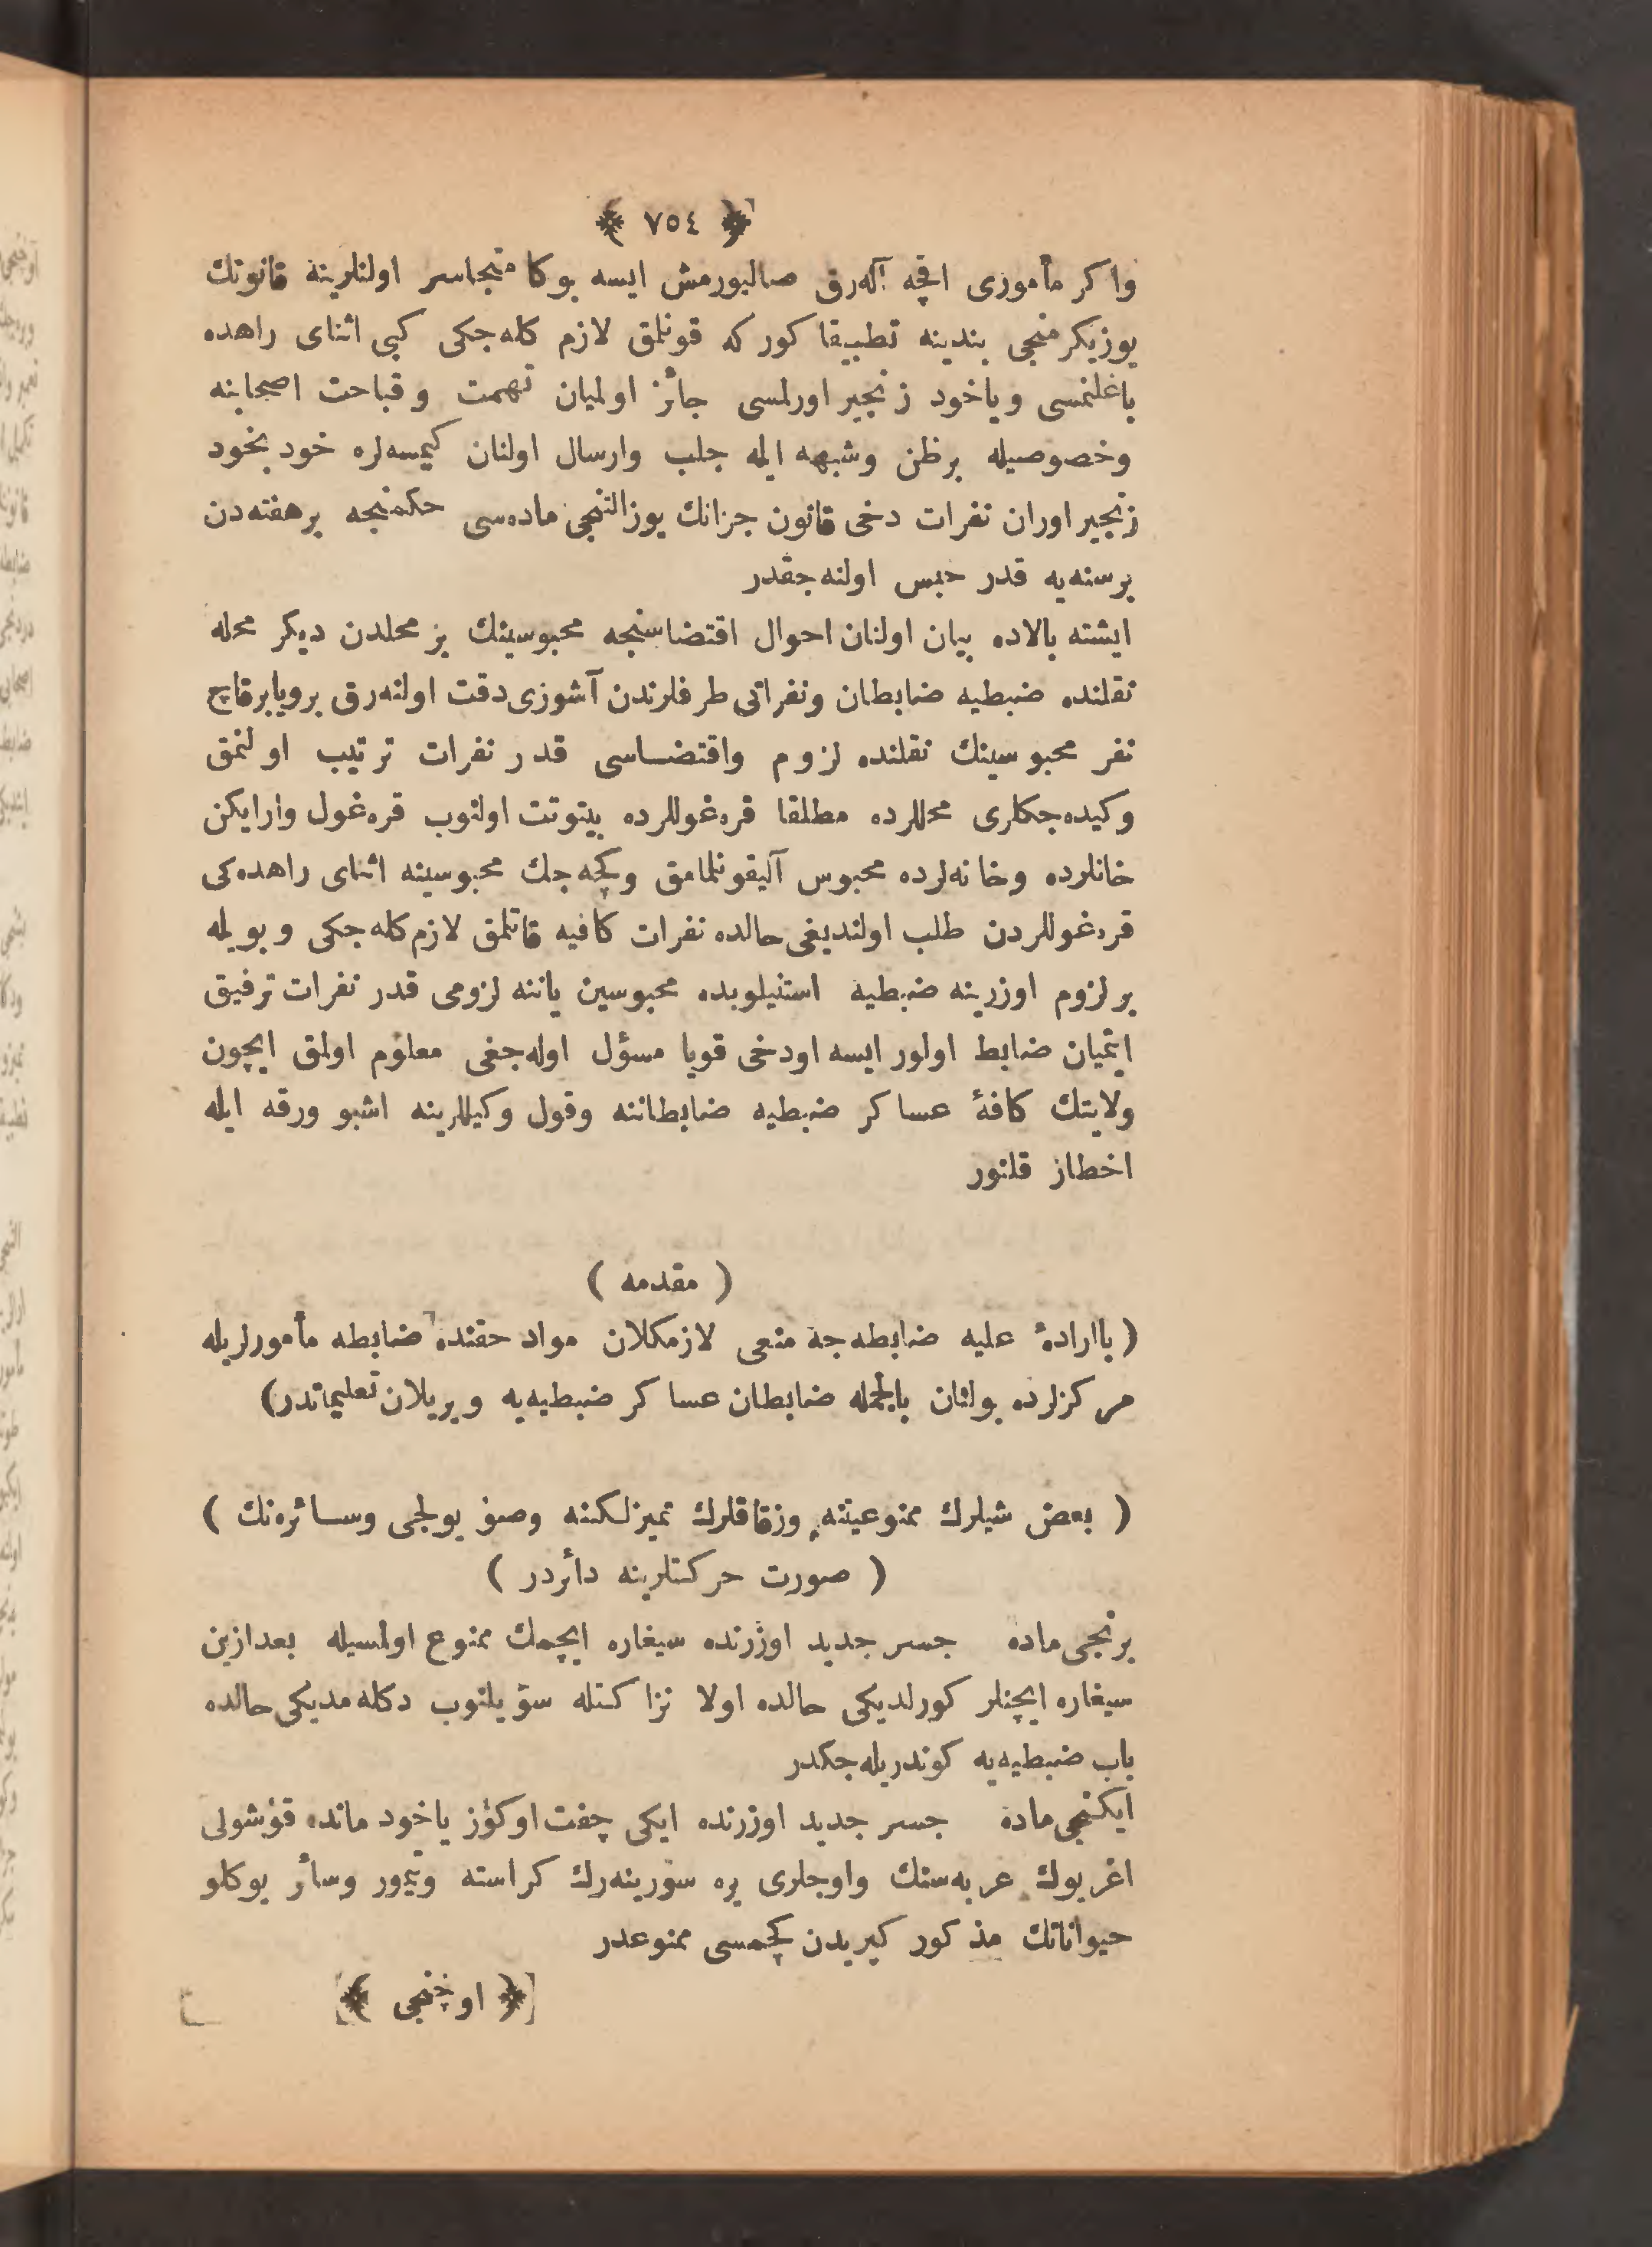 ﴿ ٧٥٤ ﴾
واكر مأموری اقچه آله‌رق صاليورمش ايسه بوكا متجاسر اولنلرينه قانونك
يوزيكرمنجی بندينه تطبيقا كوركه قونلمق لازم كله‌جكی كبی اثنای راهده
باغلنمسی وياخود زنجير اورلمسی جائز اولميان تهمت وقباحت اصحابنه
وخصوصيله برظن وشبهه ايله جلب وارسال اولنان كيمسه‌لره خود بخود
زنجير اوران نفرات دخی قانون جزانك يوزالتنجی ماده‌سی حكمنجه برهفته‌دن
برسنه‌يه قدر حبس اولنه‌جقدر
ايشته بالاده بيان اولنان احوال اقتضاسنجه محبوسينك بر محلدن ديكر محله
نقلنده ضبطيه ضابطان ونفراتی طرفلرندن آشوری دقت اولنه‌رق برويا برقاچ
نفر محبوسينك نقلنده لزوم واقتضاسی قدر نفرات ترتيب اولنمق
وكيده‌جكلری محللرده مطلقا قره‌غوللرده بيتوتت اولنوب قره‌غول وارايكن
خانلرده وخانه‌لرده محبوس آليقونلمامق وكچه‌جك محبوسينه اثنای راهده‌كی
قره‌غوللردن طلب اولنديغی حالده نفرات كافيه قاتلمق لازم كله‌جكی وبويله
برلزوم اوزرينه ضبطيه استنيلوبده محبوسين ياننه لزومی قدر نفرات ترفيق
ايتميان ضابط اولور ايسه اودخی قويا مسؤل اوله‌جغی معلوم اولمق ايچون
ولايتك كافۀ عساكر ضبطيه ضابطاننه وقول وكيللرينه اشبو ورقه ايله
اخطار قلنور
( مقدمه )
( باارادۀ عليه ضابطه‌جه منعی لازمكلان مواد حقنده ضابطه مأمورلريله
مركزلرده بولنان بالجمله ضابطان عساكر ضبطيه‌يه ويريلان تعليماتدر)
( بعض شيلرك ممنوعيتنه وزقاقلرك تميزلكنه وصو يولجی وسائره‌نك )
( صورت حركتلرينه دائردر )
برنجی ماده جسر جديد اوزرنده سيغاره ايچمك ممنوع اولمسيله بعدازين
سيغاره ايچنلر كورلديكی حالده اولا نزاكتله سويلنوب دكله‌مديكی حالده
باب ضبطيه‌يه كوندريله‌جكدر
ايكنجی ماده جسر جديد اوزرنده ايكی چفت اوكوز ياخود مانده قوشولی
اغر يوك عربه‌سنك واوجلری يره سورينه‌رك كراسته وتيمور وسائر يوكلو
حيواناتك مذكور كپريدن كچمسی ممنوعدر
﴿ اوچنجی ﴾